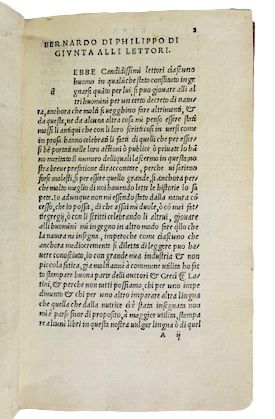 2
BERNARDO DI PHILIPPO DI
GIVNTA ALLI LETTORI.
EBBE Candidissimi lettori ciascuno
huomo in qualũche stato constituto inge
gnarsi quãto per lui, si puo giouare alli al
tri huomini per un certo decreto di natu
ra, anchora che molti si uegghino fare altrimenti, &
da questa, ne da alcuna altra cosa mi penso essere stati
mossi li antiqui che con loro scritti cosi in uersi come
in prosa hanno celebrati li fatti di quelli che per esser
si bē portati nelle loro actioni o publice o priuate lo hã
no meritato il numero delli quali lascereno in questa no
stra breue prefatione di raccontare, perche ui sarieno
forse molesti, si per essere quello grande, si anchora per
che molto meglio di noi hauendo lette le historie lo sa
pete. Io adunque non mi essendo stato dalla natura cõ
cesso, che io possa, di che assai mi duole, o cõ mei fat
ti egregij, o con li scritti celebrando li altrui, giouare
alli huomini mi ingegno in altro modo fare ciò che
la natura ne insegna, imperoche come ciascuno che
anchora mediocremente si diletta di leggere puo ha
uere conosciuto, io con grande mia industria & non
piccola fatica, gia molti anni à commune utilita ho fat
to stampare buona parte delli auttori & Greci & La
tini, & perche non tutti possiamo, chi per uno impe
dimento & chi per uno altro imparare altra lingua
che quella che dalla nutrice ci è stata insegnata non
mi è parso fuor di proposito, à maggior utilita, stampa
re alcuni libri in questa nostra uulgar lingua ò di quel
A ij